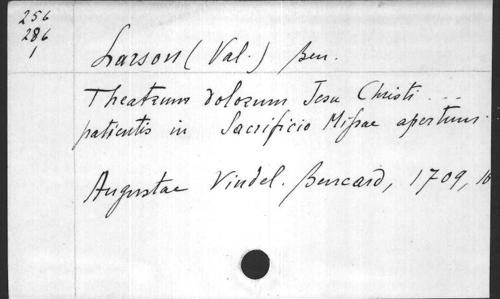 256
286
1
Larson (Val.) Ben.
Theatrum dolorum Jesu Christi ...
patientis in Sacrificio Missae apertum.
Augustae Vindel. Bencard, 1709,